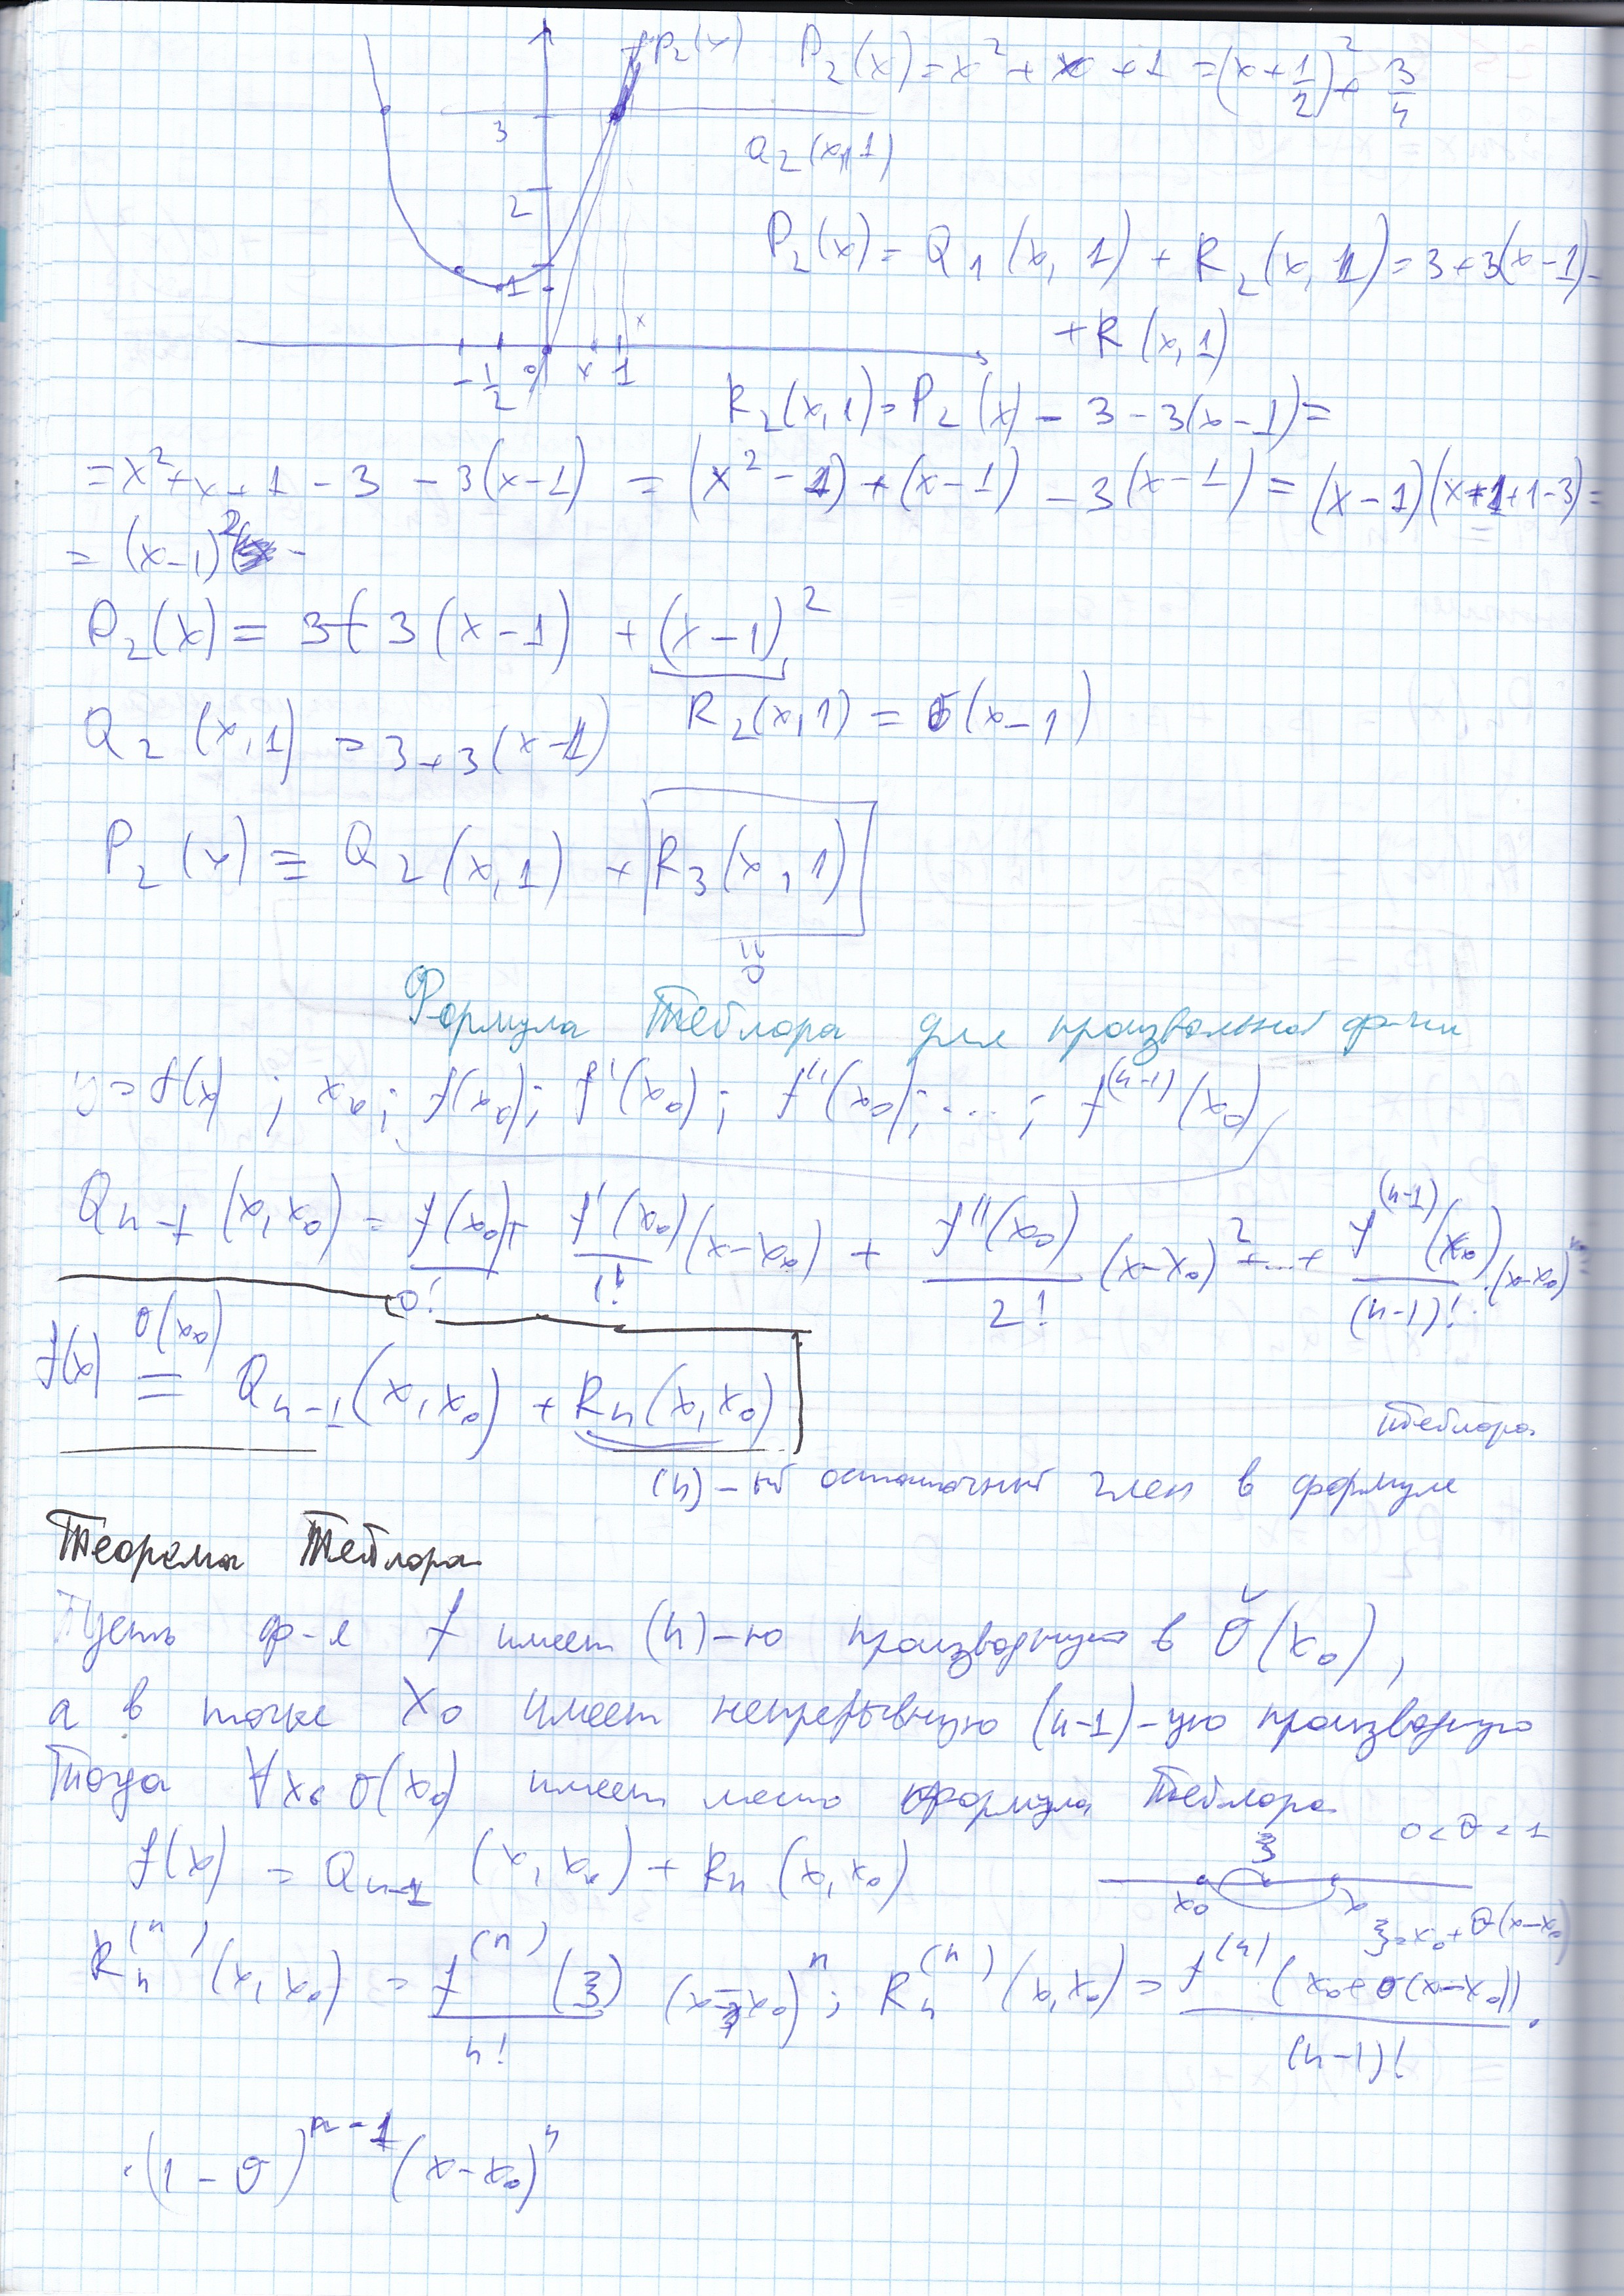 P₂(x) P₂(x) = x² + x + 1 = (x + 1/2)² + 3/4
3
Q₂(x,1)
2
P₂(x) = Q₁(x, 1) + R₂(x, 1) = 3 + 3(x-1) -
1
+ R(x, 1)
-1/2 0 x 1 x
R₂(x,1) = P₂(x) - 3 - 3(x-1) =
= x² + x + 1 - 3 - 3(x-1) = (x² - 1) + (x-1) - 3(x-1) = (x-1)(x+1+1-3) =
= (x-1)²
P₂(x) = 3 + 3(x-1) + (x-1)²
Q₂(x,1) = 3 + 3(x-1) R₂(x,1) = σ(x-1)
P₂(x) = Q₂(x,1) + R₃(x,1)
0
Формула Тейлора для произвольной ф-ции
y = f(x) ; x₀ ; f(x₀) ; f'(x₀) ; f''(x₀) ; ... ; f⁽ⁿ⁻¹⁾(x₀)
Qₙ₋₁(x,x₀) = f(x₀)/0! + f'(x₀)/1! (x-x₀) + f''(x₀)/2! (x-x₀)² + ... + f⁽ⁿ⁻¹⁾(x₀)/(n-1)! · (x-x₀)
f(x) =^{σ(x₀)} Qₙ₋₁(x,x₀) + Rₙ(x,x₀)
(n)-ый остаточный член в формуле Тейлора
Теорема Тейлора
Пусть ф-я f имеет (n)-ю производную в σ̌(x₀),
а в точке x₀ имеет непрерывную (n-1)-ую производную
Тогда ∀x∈σ(x₀) имеет место формула Тейлора
0<θ<1
f(x) = Qₙ₋₁(x,x₀) + Rₙ(x,x₀)
x₀ ξ x
ξ = x₀ + θ(x-x₀)
Rₙ⁽ⁿ⁾(x,x₀) = f⁽ⁿ⁾(ξ)/n! (x-x₀)ⁿ ; Rₙ⁽ⁿ⁾(x,x₀) = f⁽ⁿ⁾(x₀+θ(x-x₀))/(n-1)! ·
·(1-θ)ⁿ⁻¹(x-x₀)ⁿ